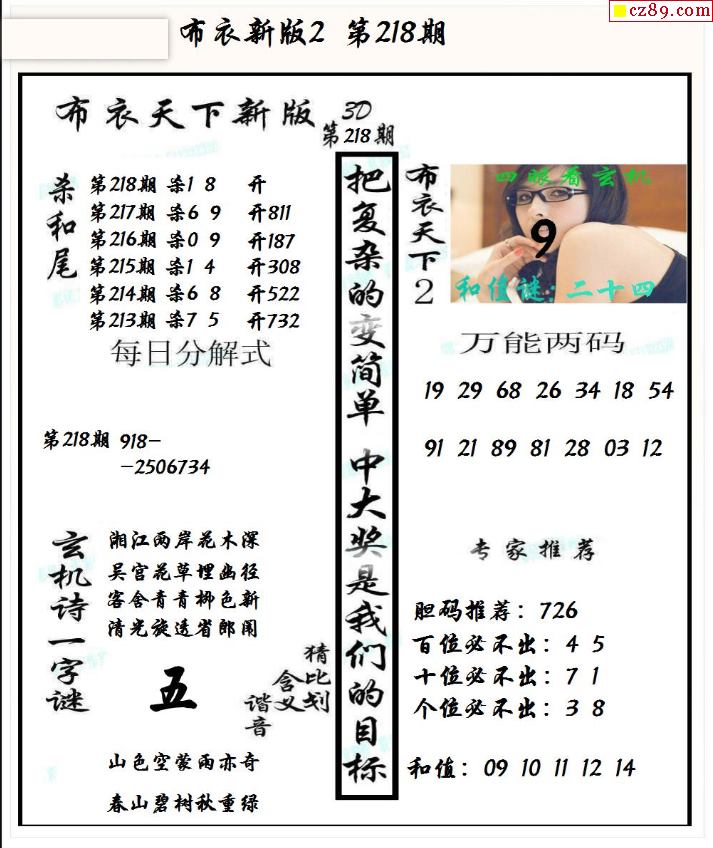 cz89.com
布衣新版2 第218期
布衣天下新版 3D
第218期
杀和尾
第218期 杀1 8 开
第217期 杀6 9 开811
第216期 杀0 9 开187
第215期 杀1 4 开308
第214期 杀6 8 开522
第213期 杀7 5 开732
每日分解式
第218期 918-
-2506734
玄机诗一字谜
湘江两岸花木深
吴宫花草埋幽径
客舍青青柳色新
清光旋透省郎闱
五
猜比划
含义
谐音
山色空蒙雨亦奇
春山碧树秋重绿
把复杂的变简单 中大奖是我们的目标
布衣天下2
四眼看玄机
9
和值谜:二十四
万能两码
19 29 68 26 34 18 54
91 21 89 81 28 03 12
专家推荐
胆码推荐：726
百位必不出：4 5
十位必不出：7 1
个位必不出：3 8
和值：09 10 11 12 14